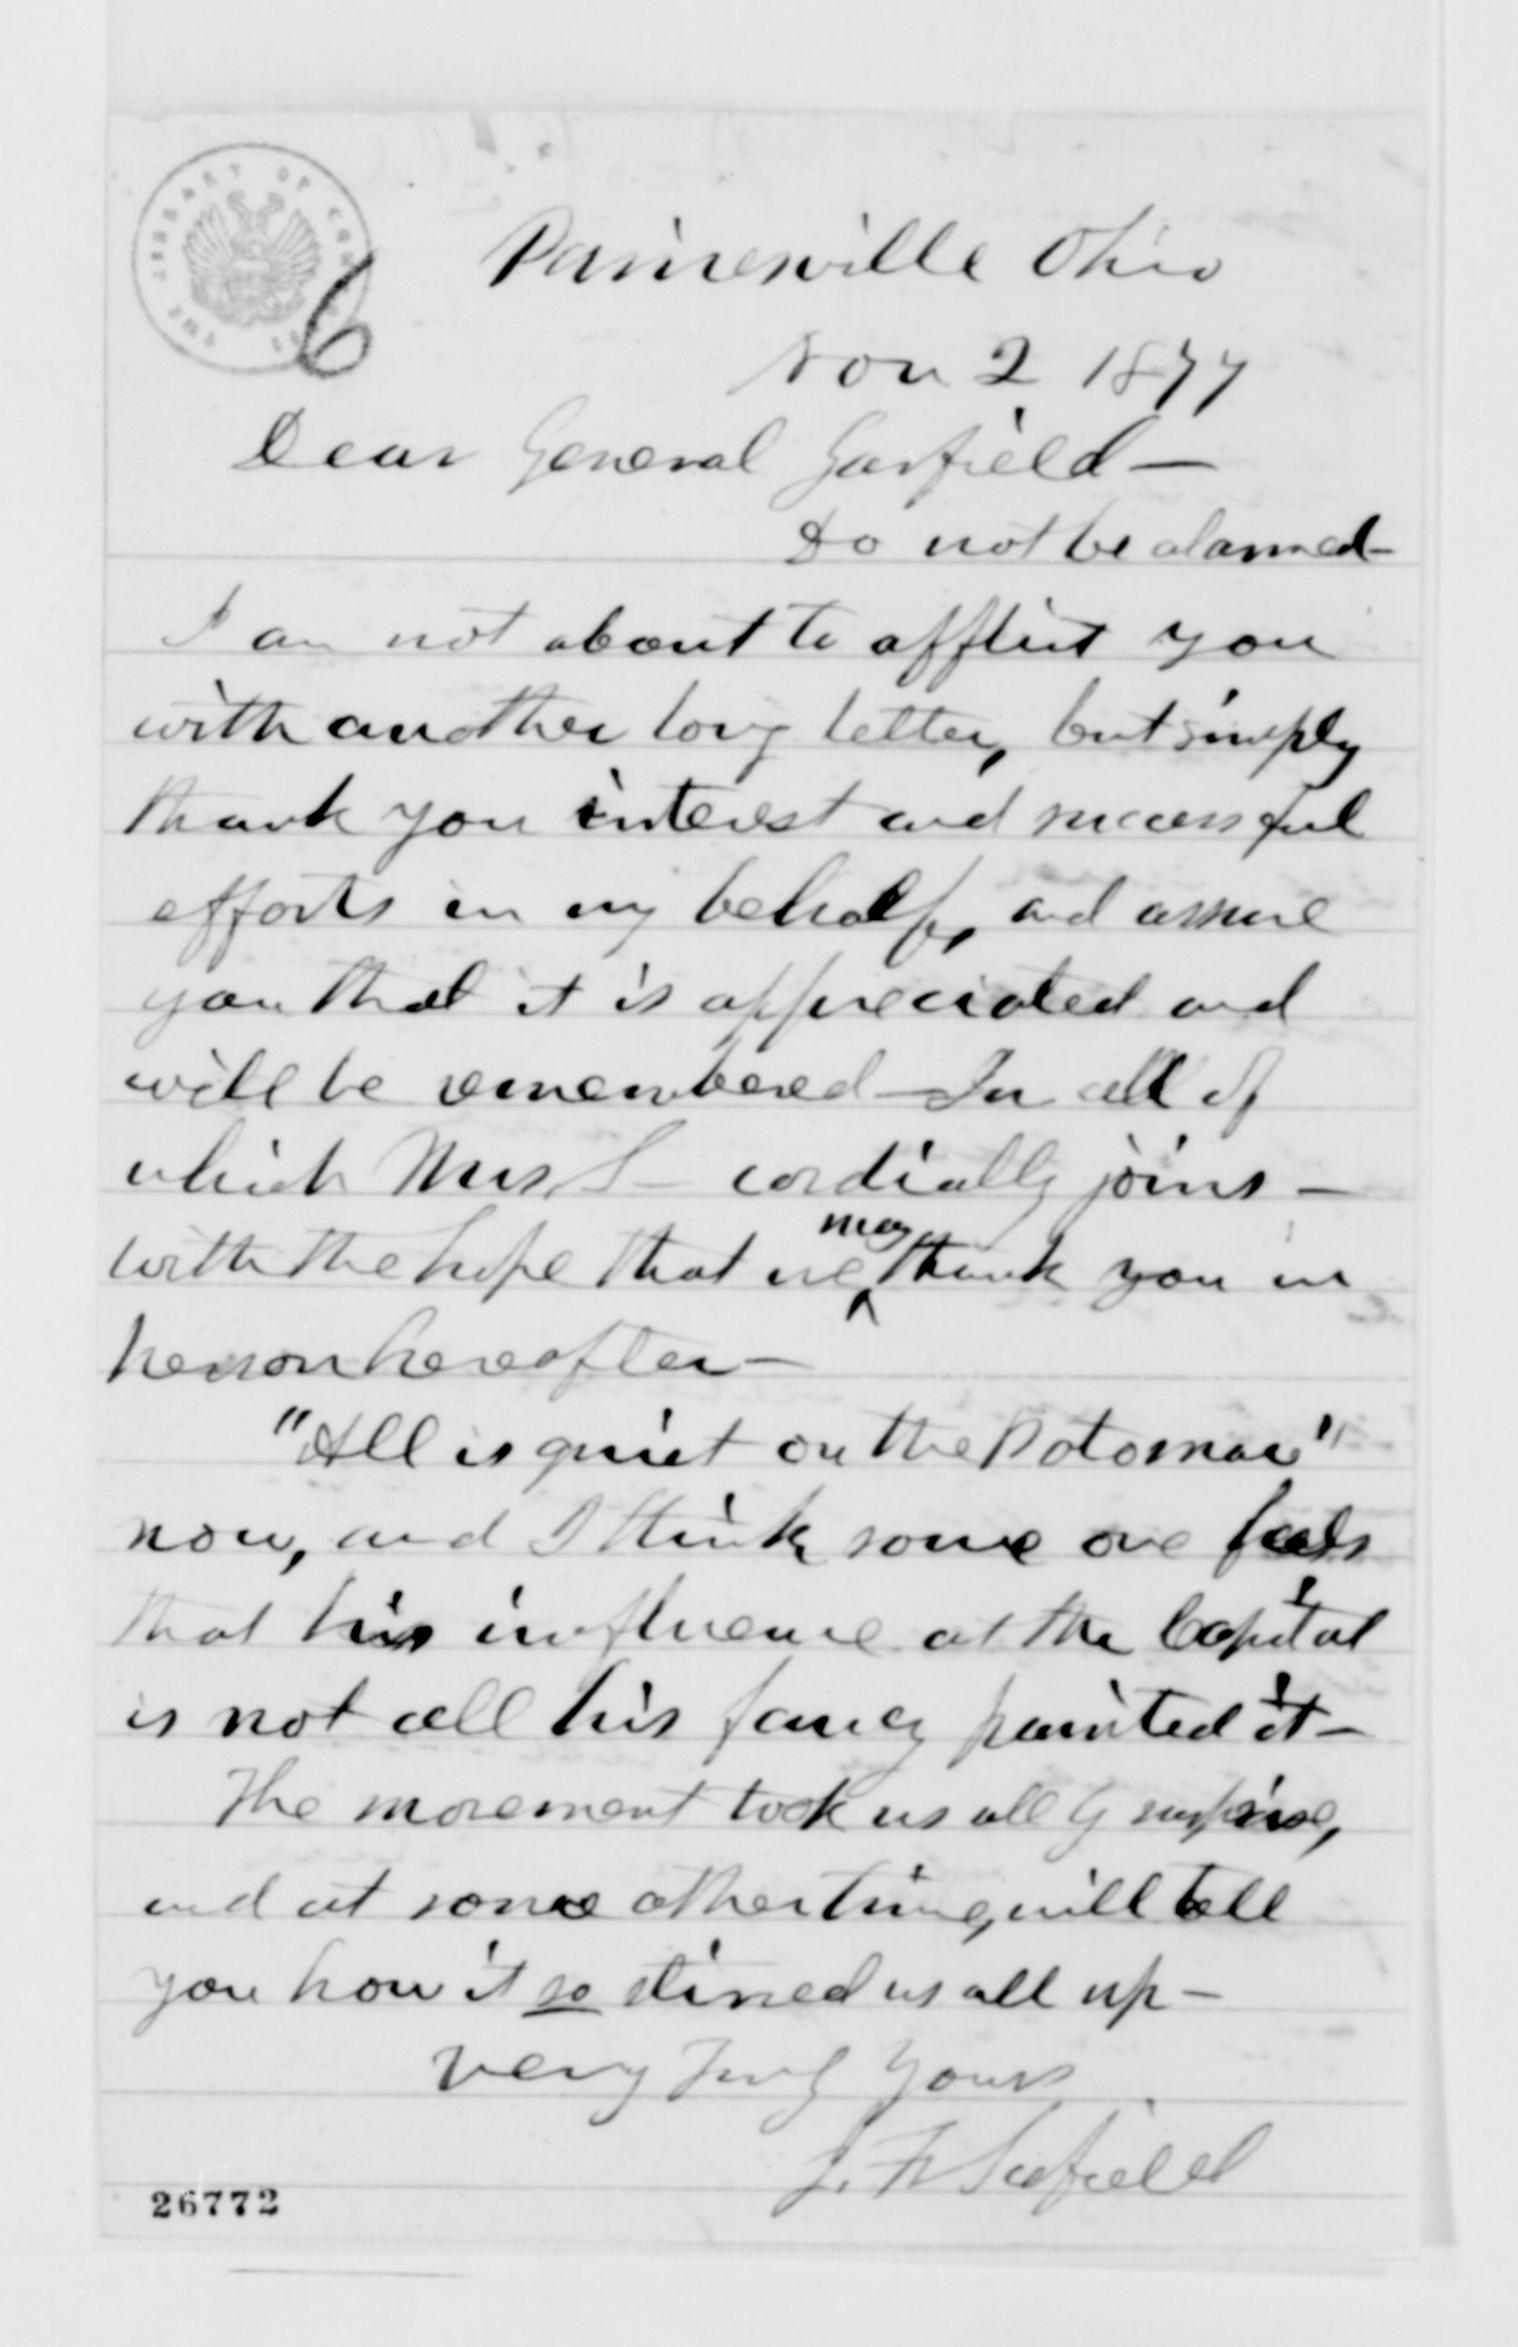 THE LIBRARY OF CONGRESS
6
Painesville Ohio
Nov 2 1877
Dear General Garfield—
Do not be alarmed—
I am not about to afflict you
with another long letter, but simply
thank you interest and successful
efforts in my behalf, and assure
you that it is appreciated and
will be remembered—In all of
which Mrs S— cordially joins—
with the hope that we may thank you in
person hereafter—
"All is quiet on the Potomac"
now, and I think some one feels
that his influence at the Capital
is not all his fancy painted it—
The movement took us all by surprise,
and at some other time, will tell
you how it so stirred us all up—
Very Truly Yours
J. F. Scofield
26772